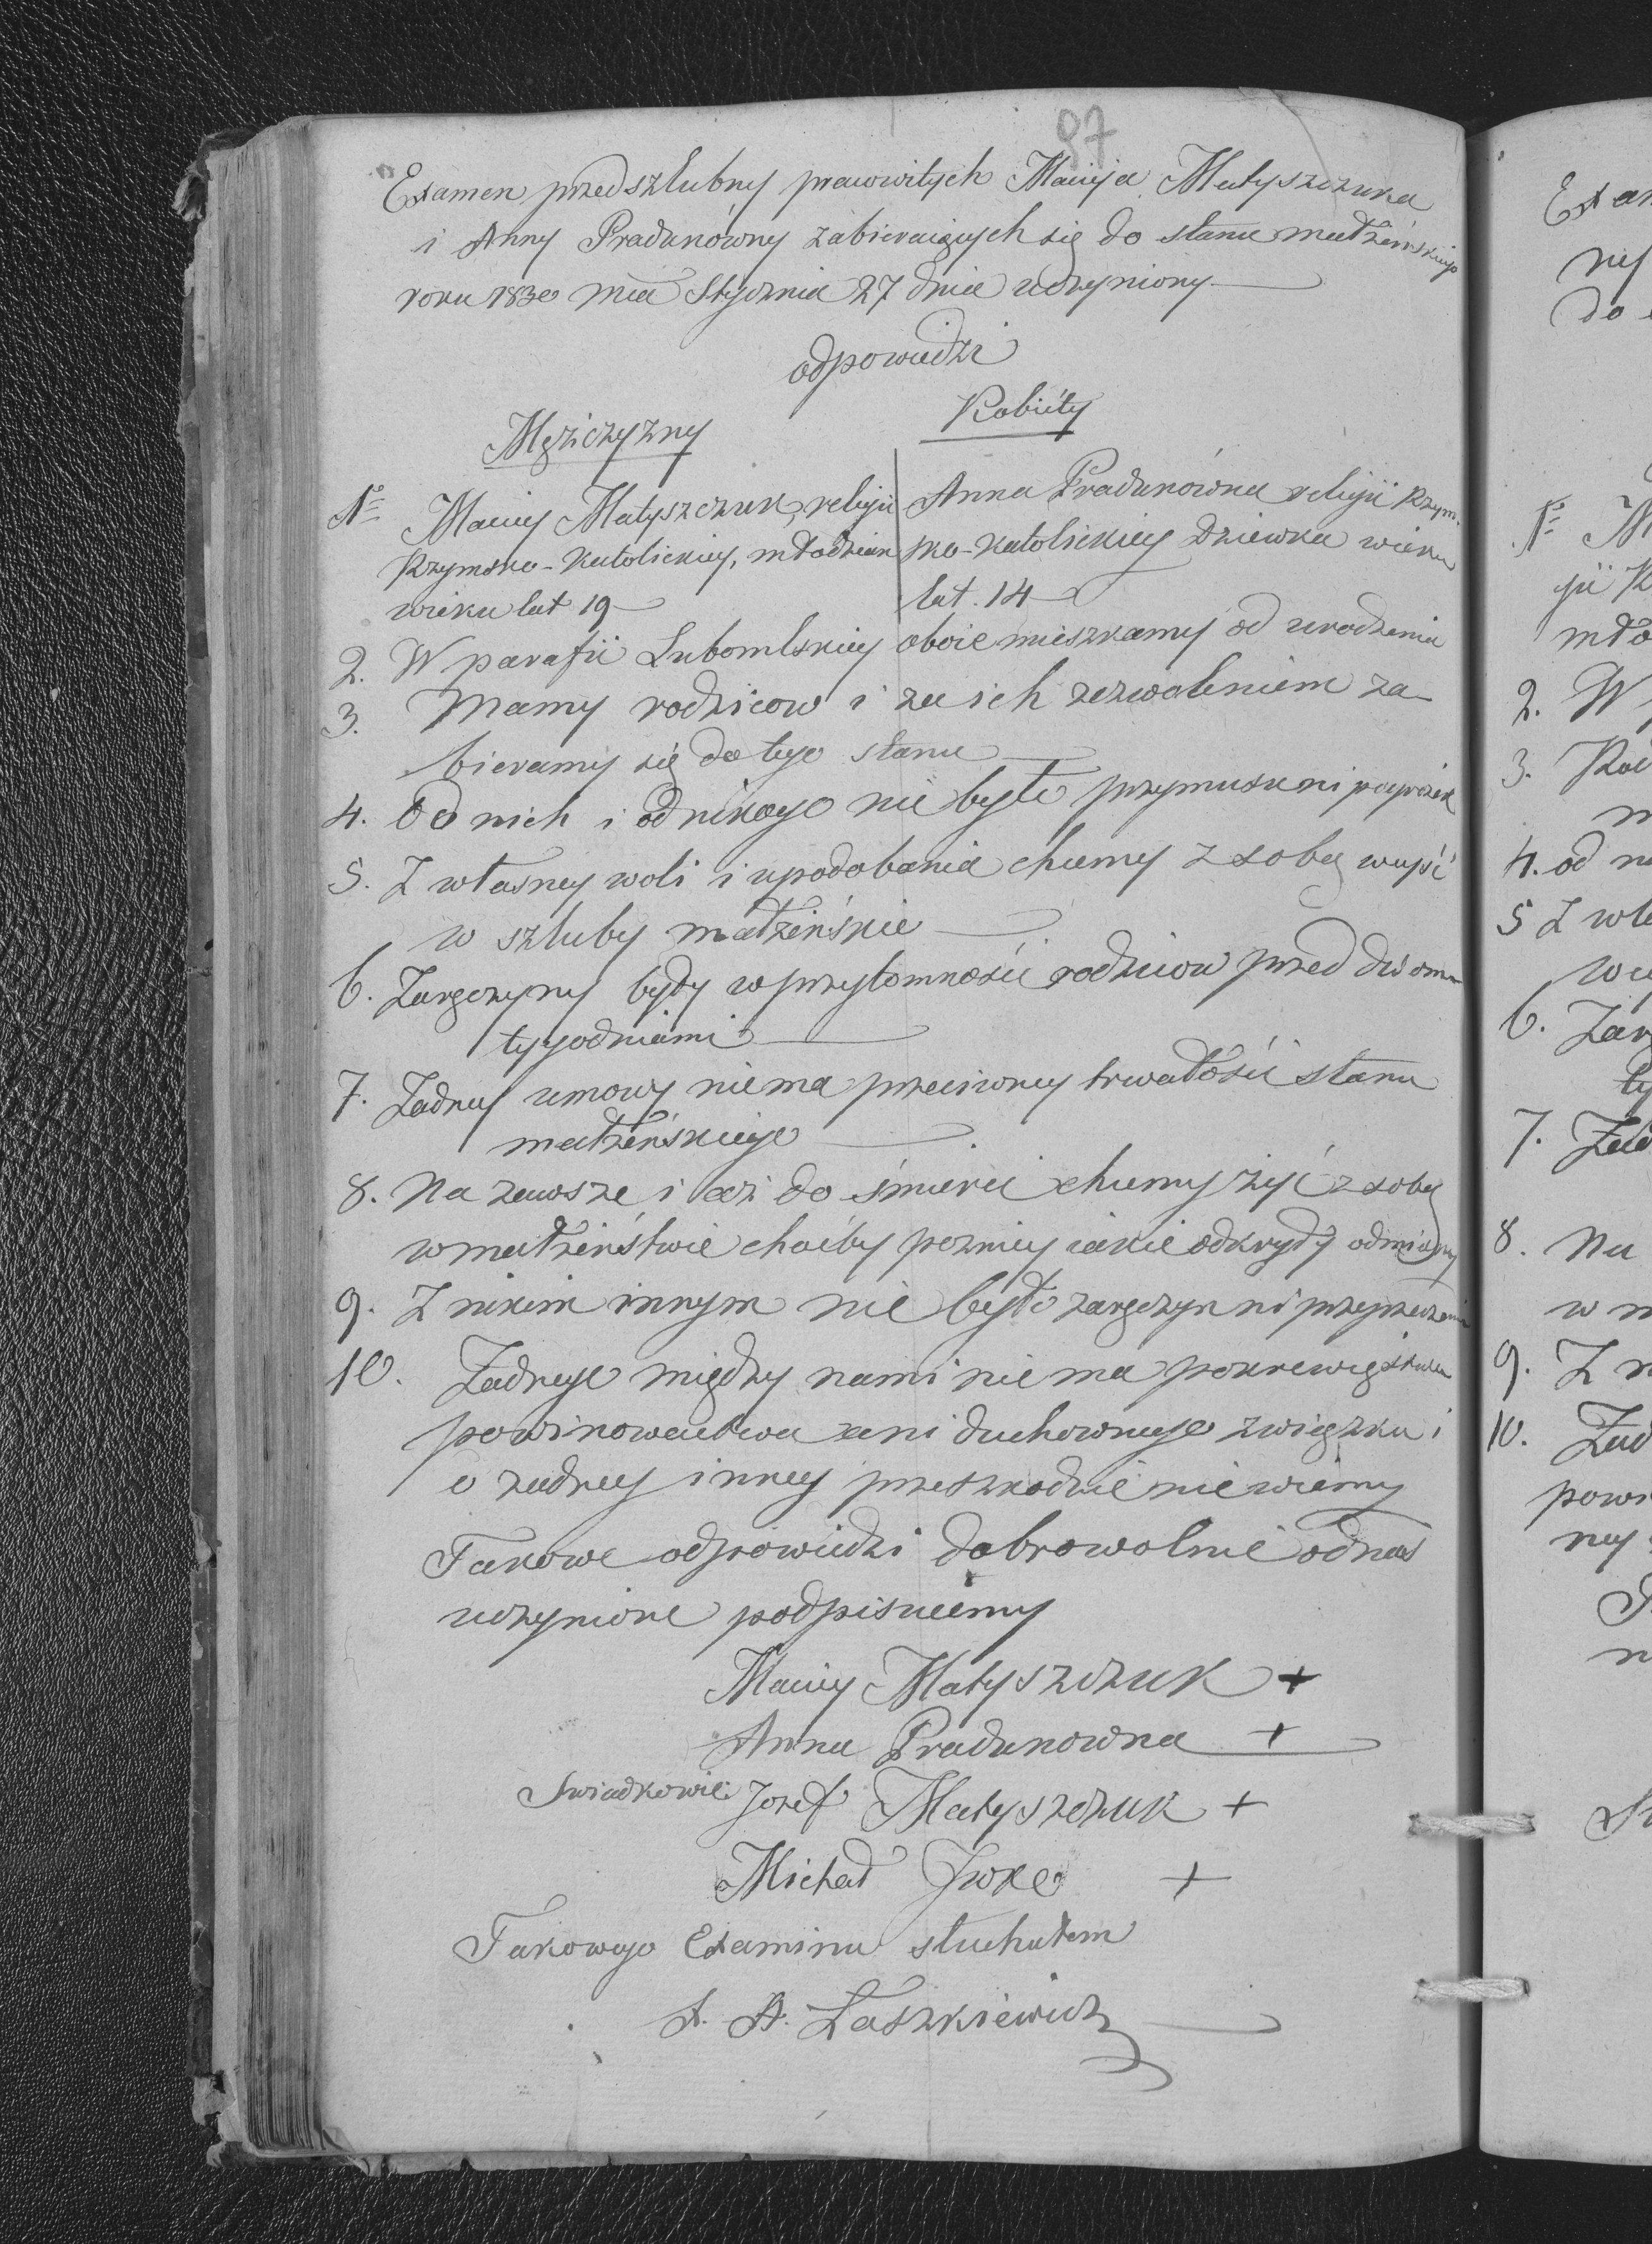 97
Examen przedszlubny pracowitych Macieja Matyszczuka
i Anny Pradunówny zabieraiących się do stanu małżeńskiego
roku 1830 mca Stycznia 27 dnia uczyniony
odpowiedzi
Mężiczyzny
Kobiéty
Nº Maciey Matyszczuk, religii
Rzymsko-Katolickiey, młodzian
wieku lat 19
Anna Pradunówna religii Rzym-
sko-Katolickiey Dziewka wieku
lat 14
2. W parafii Lubomlskiey oboie mieszkamy od urodzenia
3. Mamy rodzicow i za ich zezwoleniem za-
bieramy się do tego stanu
4. Od nich i od nikogo nie było przymusu ni
5. Z własney woli i upodobania chcemy z sobą wnyść
w szluby małżeńskie
6. Zaręczyny były w przytomności rodzicow przed dwoma
tygodniami
7. Żadney umowy niema przeciwney trwałości stanu
małżeńskiego
8. Na zawsze i aż do śmierci chcemy żyć z sobą
w małżeństwie choćby pozniey iakie odkryły odmiany
9. Z nikim innym nie było zaręczyn ni przyrzeczenia
10. Żadnego między nami nie ma pokrewięństwa
powinowactwa ani duchownego związku i
o żadney inney przeszkodzie nie wiemy
Takowe odpowiedzi dobrowolnie od nas
uczynione podpisuiemy
Maciey Matyszczuk +
Anna Pradunowna +
Swiadkowie Jozef Matyszczuk +
Michał +
Takowego Examinu słuchałem
X. A. Laszkiewicz
Exam
ny
do
Nº M
gii R
mło
2. W
3. Rod
m
4. od n
5 Z wła
we
6. Zarę
ty
7. Żad
8. Na
w m
9. Z n
10. Żad
powi
ney
n